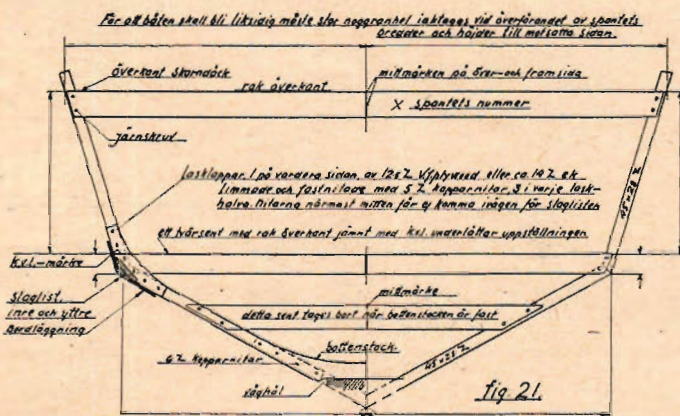 För att båten skall bli liksidig måste stor noggranhet iakttages vid överförandet av spantets
bredder och höjder till motsatta sidan.
överkant skarndäck
rak överkant
mittmärken på över- och framsida
X spantets nummer
järnskruv
Lasklappar, 1 på vardera sidan, av 12 à Vfplywood eller ca 14 Z ek
limmade och fastnitade med 5 Z kopparnitar, 3 i varje lask-
halva. Nitarna närmast mitten får ej komma ivägen för slaglisten
45×28 Z
ett tvärsent med rak överkant jämnt med k.v.l. underlättar uppställningen
k.v.l.-märke
mittmärke
Slaglist,
inre och yttre
Bordläggning
detta sent tages bort när bottenstocken är fast
bottenstock
6 Z kopparnitar
45×28 Z
våghål
fig 21.